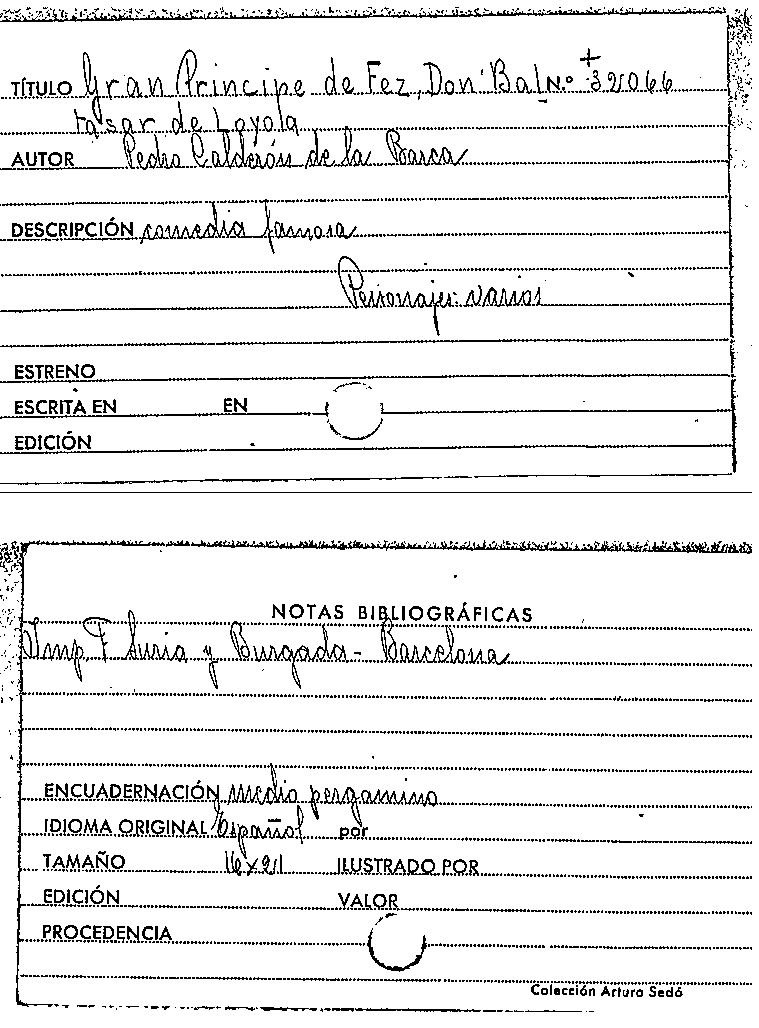 TÍTULO Gran Principe de Fez, Don Bal N.º 32066
tasar de Loyola
AUTOR Pedro Calderón de la Barca
DESCRIPCIÓN comedia famosa
Personajes: varios
ESTRENO
ESCRITA EN EN
EDICIÓN
NOTAS BIBLIOGRÁFICAS
Imp. F Suria y Burgada - Barcelona
ENCUADERNACIÓN medio pergamino
IDIOMA ORIGINAL Español por
TAMAÑO 16x21 ILUSTRADO POR
EDICIÓN VALOR
PROCEDENCIA
Colección Arturo Sedó